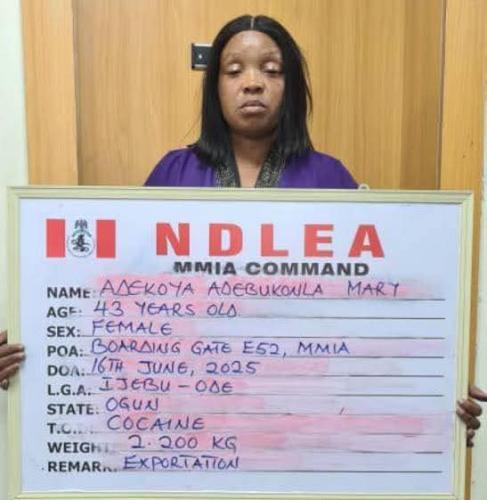 NDLEA
MMIA COMMAND
NAME: ADEKOYA ADEBUKONLA MARY
AGE: 43 YEARS OLD
SEX: FEMALE
POA: BOARDING GATE E52, MMIA
DOA: 16TH JUNE, 2025
L.G.A: IJEBU - ODE
STATE: OGUN
T.O.D: COCAINE
WEIGHT: 2.200 KG
REMARK: EXPORTATION